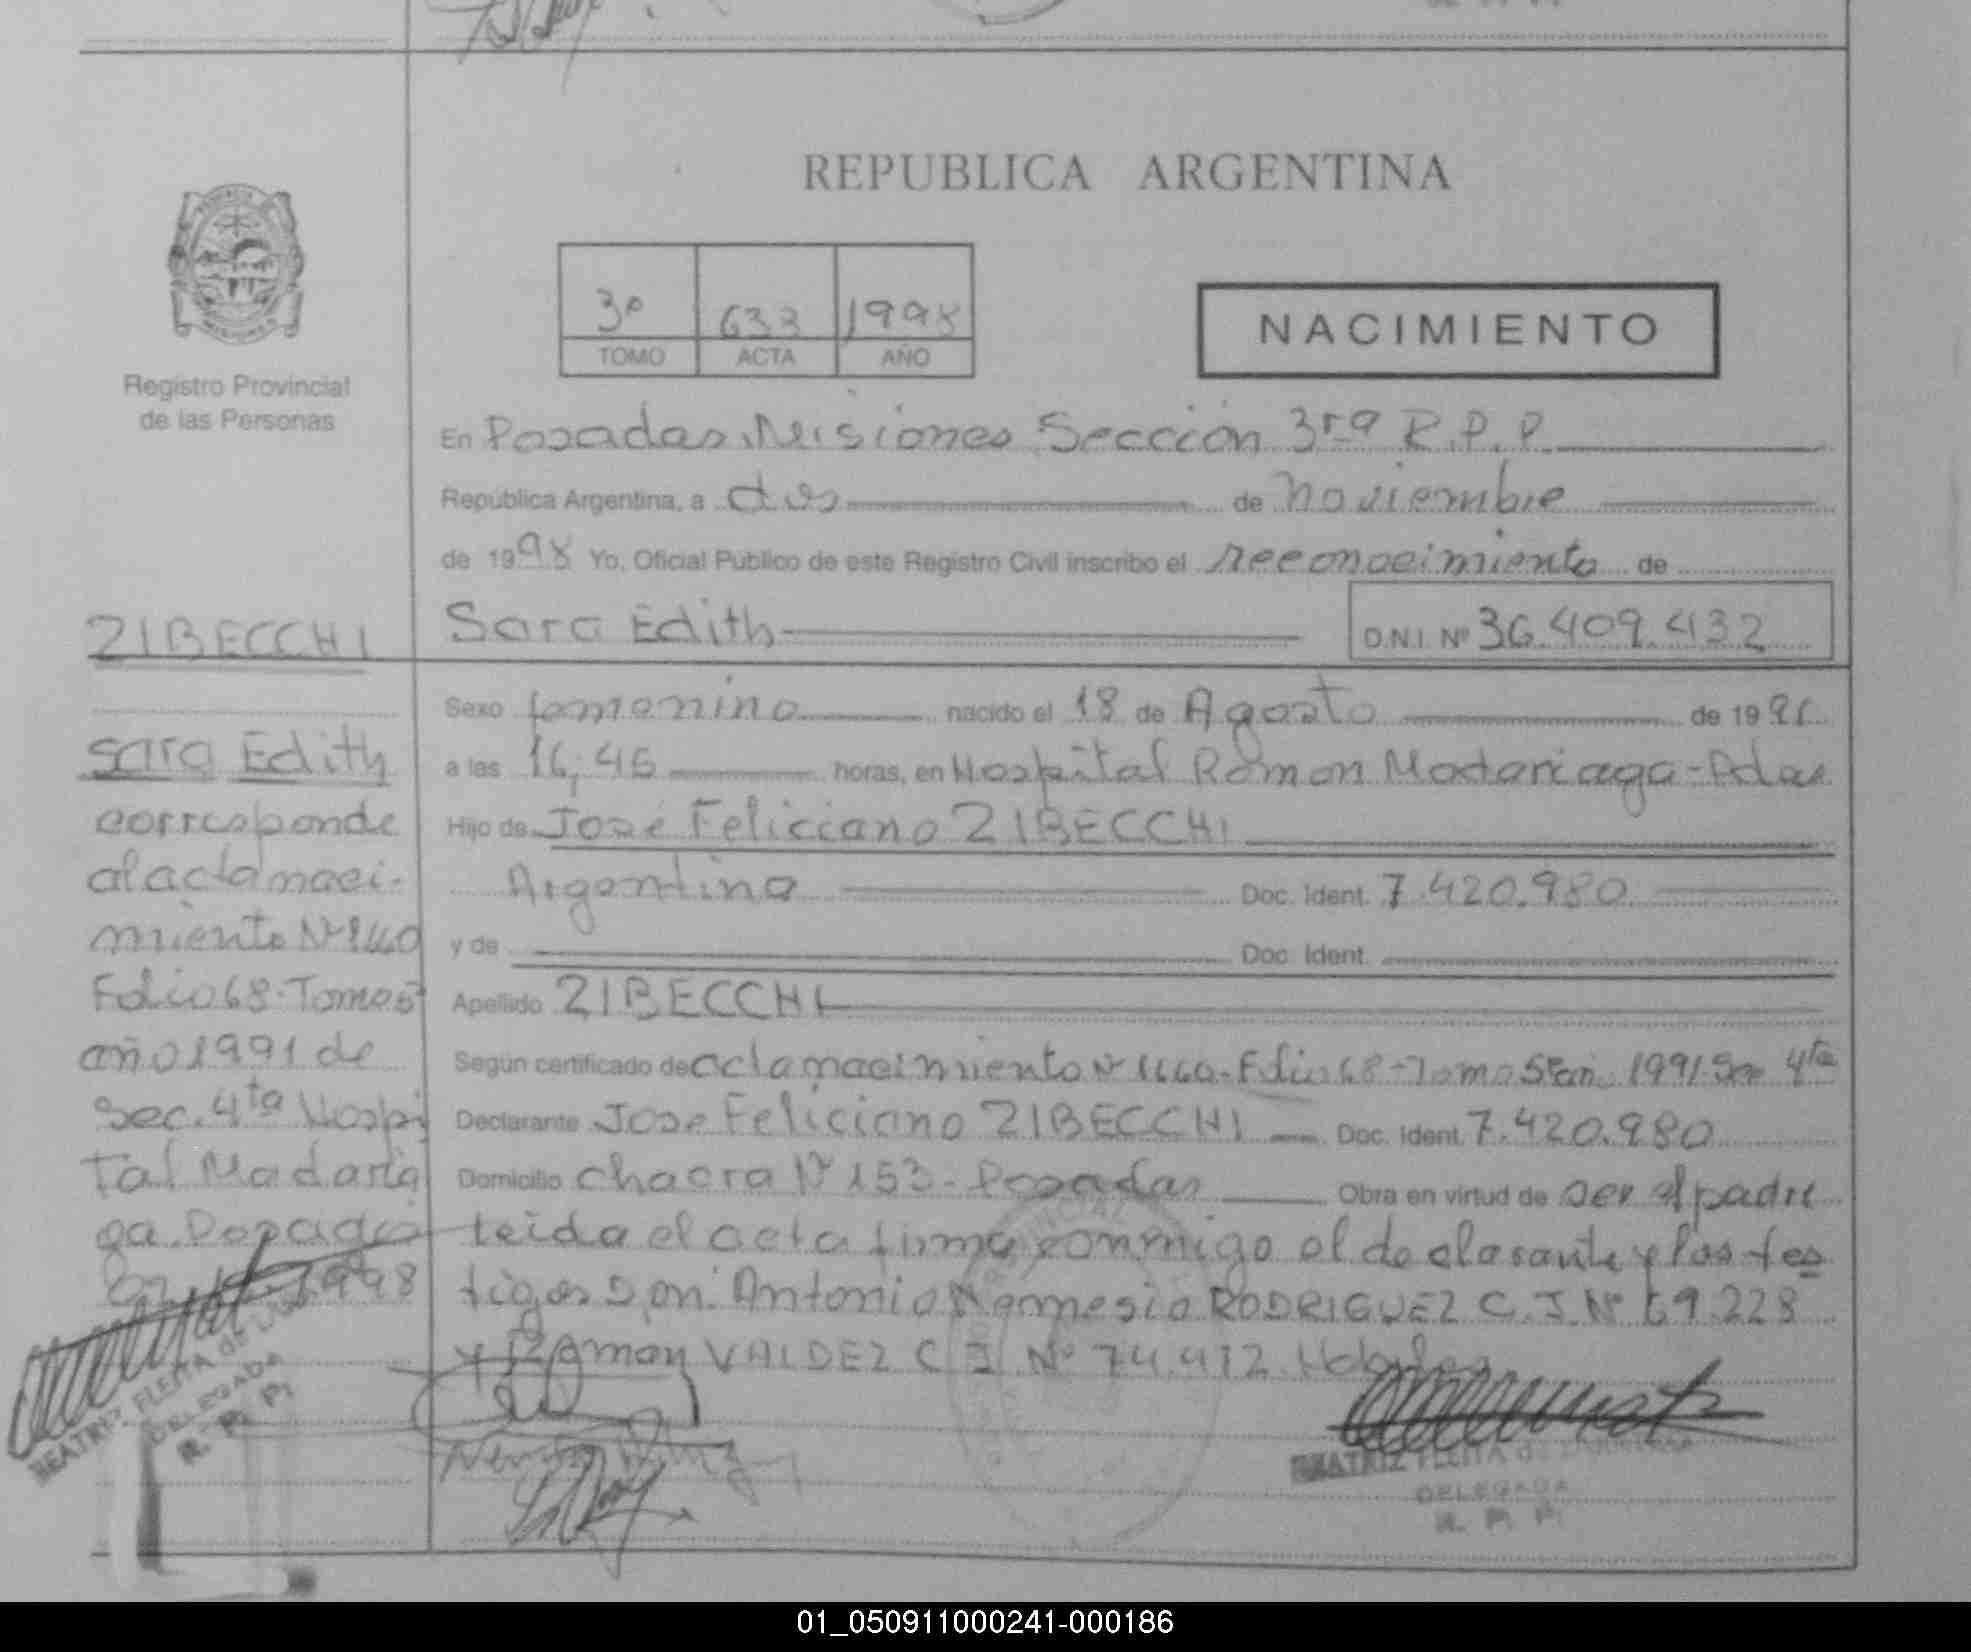 REPUBLICA ARGENTINA
3º 633 1998
TOMO ACTA AÑO
NACIMIENTO
Registro Provincial
de las Personas
En Posadas, Misiones Sección 3ra R.P.P.
República Argentina, a dos de noviembre
de 1998 Yo, Oficial Público de este Registro Civil inscribo el reconocimiento de
Sara Edith D.N.I. Nº 36.409.432
Sexo femenino nacido el 18 de Agosto de 1991
a las 16,45 horas, en Hospital Ramon Madariaga - Pdas
Hijo de José Feliciano ZIBECCHI
Argentino Doc. Ident. 7.420.980
y de Doc. Ident.
Apellido ZIBECCHI
Según certificado de acta nacimiento Nº Folio 68 - Tomo 1991 Sec 4ta
Declarante Jose Feliciano ZIBECCHI Doc. Ident. 7.420.980
Domicilio Chacra Nº 153 - Posadas Obra en virtud de ser el padre
leida el acta firma conmigo el declarante y los tes
tigos Don: Antonio Nemesio RODRIGUEZ C.I. Nº 69.228
y Ramon VALDEZ C.I. Nº 74.
ZIBECCHI
Sara Edith
corresponde
al acta naci-
miento Nº
Folio 68. Tomo 5º
año 1991 de
Sec. 4ta Hospi
tal Madaria
ga. Posadas
1998
BEATRIZ FLEITA de
DELEGADA
R. P. P.
BEATRIZ FLEITA de
DELEGADA
R. P. P.
01_050911000241-000186